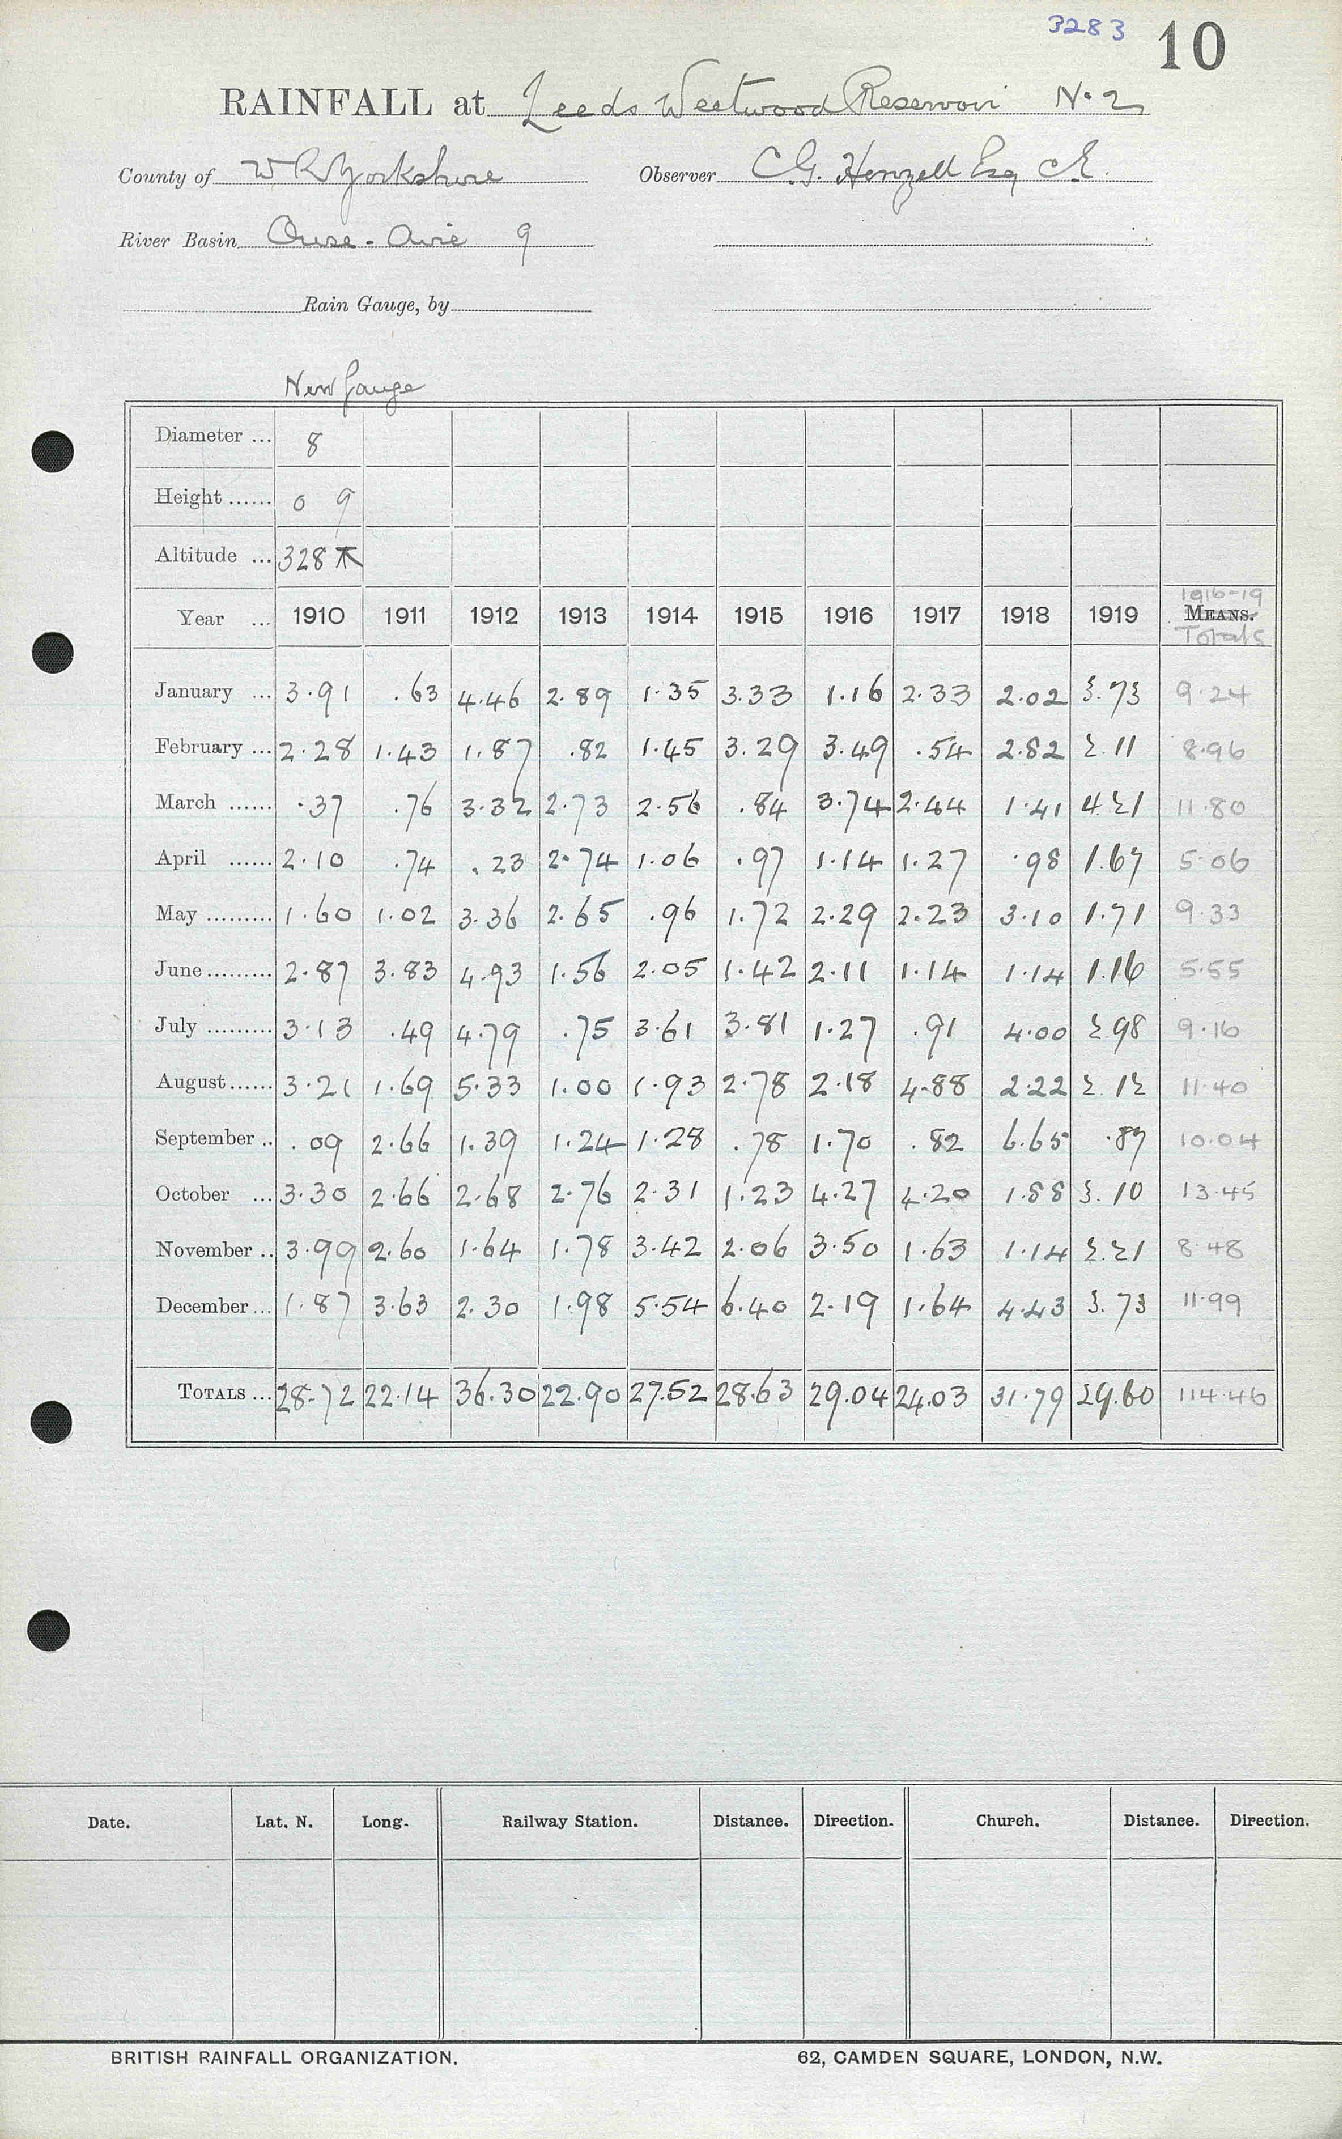 3283 10
RAINFALL at Leeds Westwood Reservoir No 2
County of W R Yorkshire Observer C.G. Henzell Esq C.E.
River Basin Ouse - Aire 9
Rain Gauge, by
New Gauge
Diameter ... 8
Height ...... 0 9
Altitude ... 328
1916-19
Year ... 1910 1911 1912 1913 1914 1915 1916 1917 1918 1919 MEANS.
Totals
January ... 3.91 .63 4.46 2.89 1.35 3.33 1.16 2.33 2.02 3.73 9.24
February ... 2.28 1.43 1.87 .82 1.45 3.29 3.49 .54 2.82 2.11 8.96
March ...... .37 .76 3.32 2.73 2.56 .84 3.74 2.44 1.41 4.21 11.80
April ...... 2.10 .74 .23 2.74 1.06 .97 1.14 1.27 .98 1.67 5.06
May ......... 1.60 1.02 3.36 2.65 .96 1.72 2.29 2.23 3.10 1.71 9.33
June ......... 2.87 3.83 4.93 1.56 2.05 1.42 2.11 1.14 1.14 1.16 5.55
July ......... 3.13 .49 4.79 .75 3.61 3.81 1.27 .91 4.00 2.98 9.16
August ...... 3.21 1.69 5.33 1.00 1.93 2.78 2.18 4.88 2.22 2.12 11.40
September .. .09 2.66 1.39 1.24 1.28 .78 1.70 .82 6.65 .87 10.04
October ... 3.30 2.66 2.68 2.76 2.31 1.23 4.27 4.20 1.88 3.10 13.45
November .. 3.99 2.60 1.64 1.78 3.42 2.06 3.50 1.63 1.14 2.21 8.48
December ... 1.87 3.63 2.30 1.98 5.54 6.40 2.19 1.64 4.43 3.73 11.99
TOTALS ... 28.72 22.14 36.30 22.90 27.52 28.63 29.04 24.03 31.79 29.60 114.46
Date. Lat. N. Long. Railway Station. Distance. Direction. Church. Distance. Direction.
BRITISH RAINFALL ORGANIZATION. 62, CAMDEN SQUARE, LONDON, N.W.